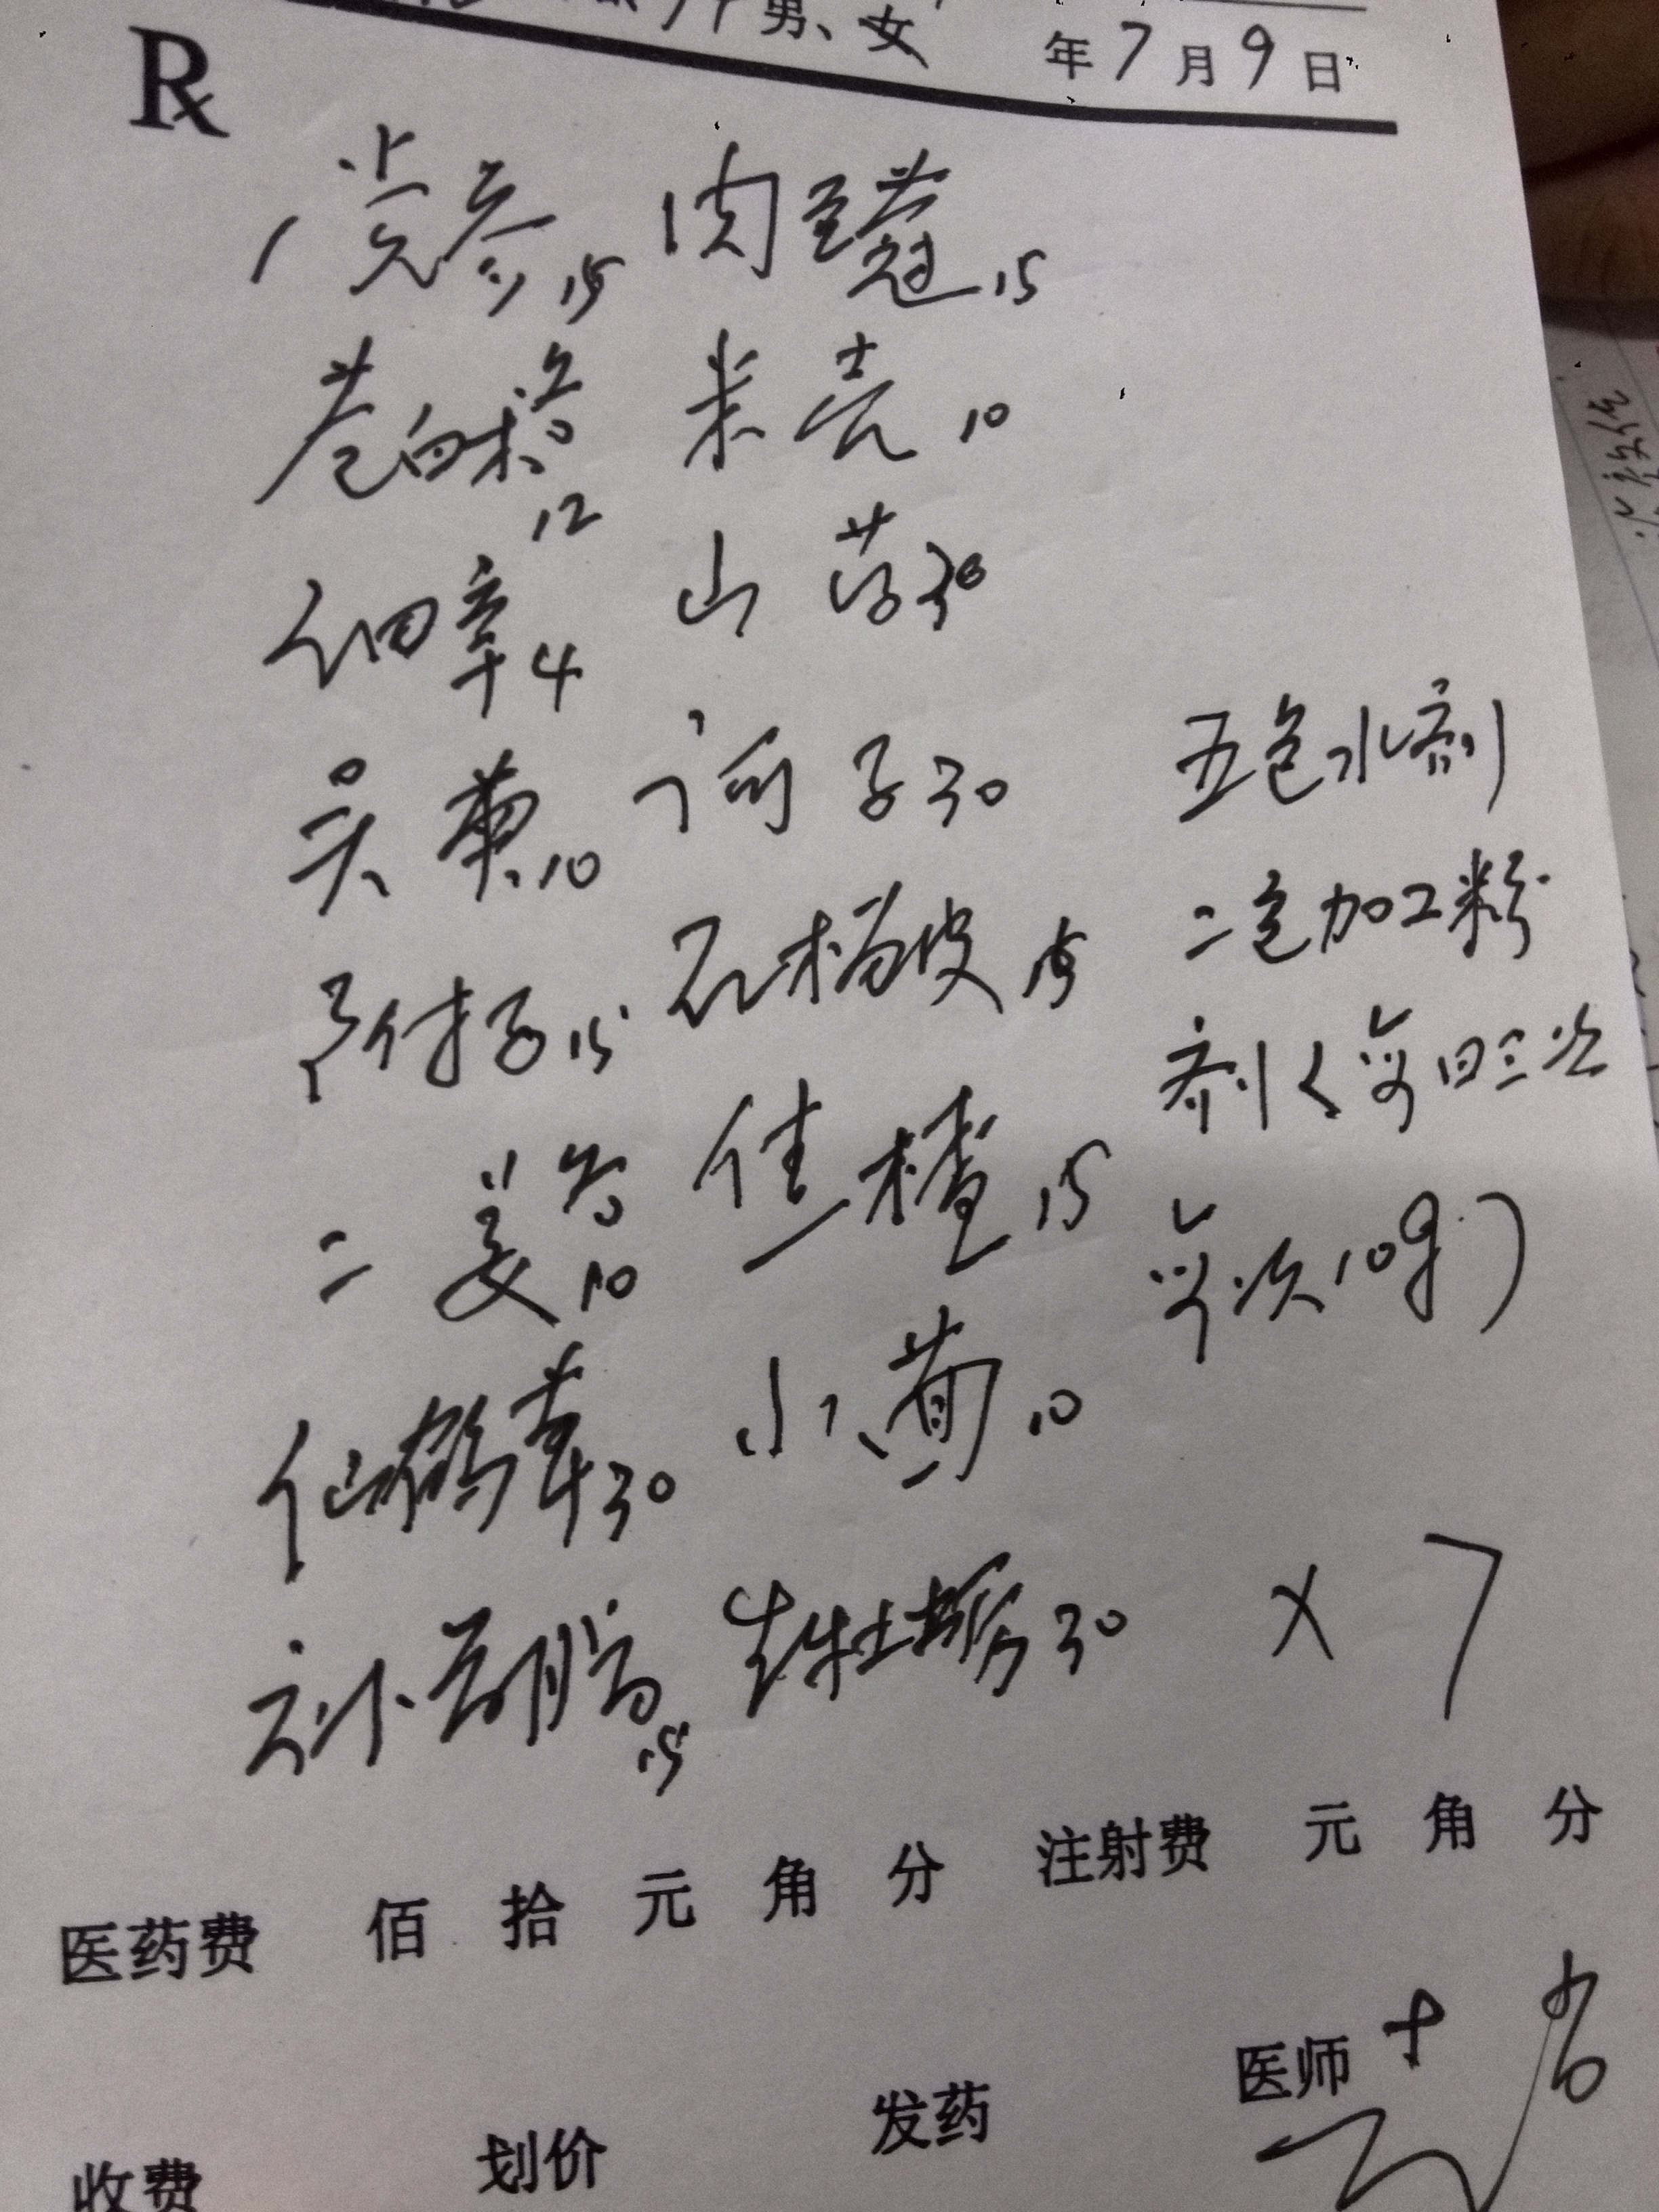 男、女 年7月9日
Rx
党参15 肉豆蔻15
苍白术各12 米壳10
细辛4 山药30
吴萸10 诃子30 五包水剂
附子15 石榴皮15 二包加工粉
剂(每日三次
二姜各10 焦楂15 每次10g)
仙鹤草30 小茴10
补骨脂15 生牡蛎30 ×7
医药费 佰 拾 元 角 分 注射费 元 角 分
医师
收费 划价 发药